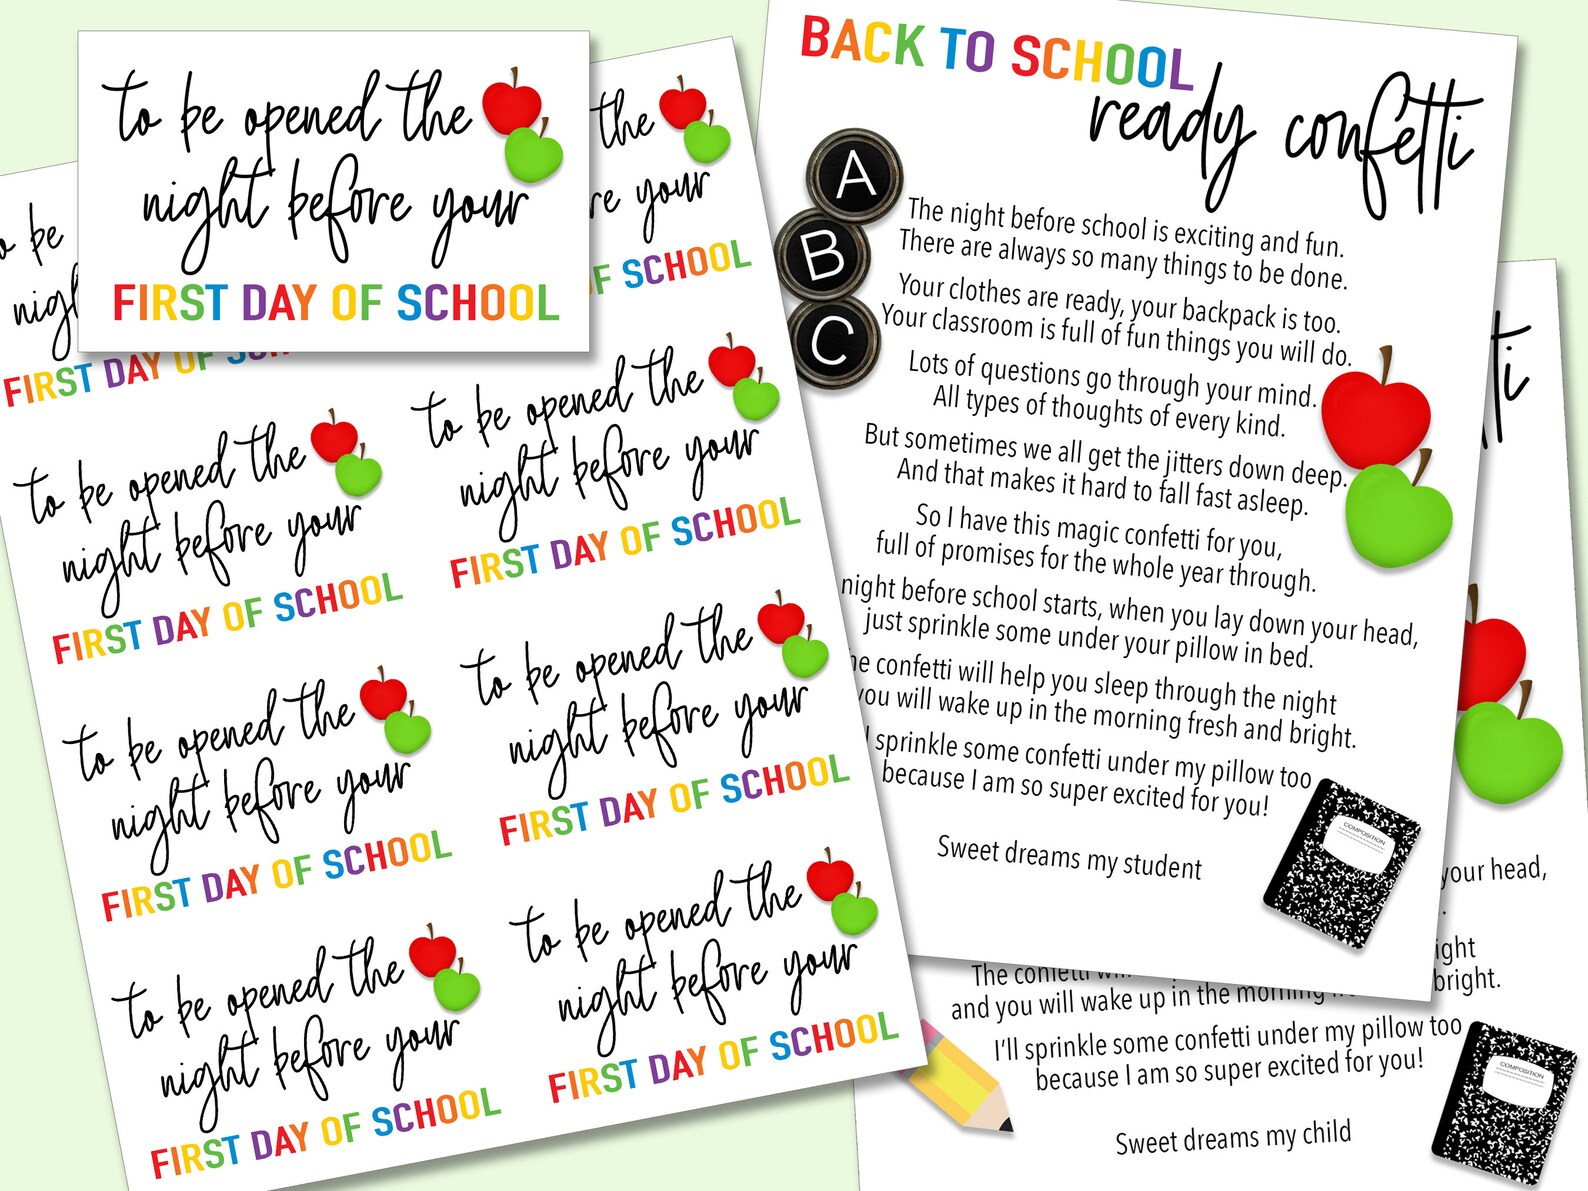 to be opened the
night before your
FIRST DAY OF SCHOOL
the
your
OF SCHOOL
to be
FIRST DAY OF
to be opened the
night before your
FIRST DAY OF SCHOOL
to be opened the
night before your
FIRST DAY OF SCHOOL
to be opened the
night before your
FIRST DAY OF SCHOOL
to be opened the
night before your
FIRST DAY OF SCHOOL
to be opened the
night before your
FIRST DAY OF SCHOOL
to be opened the
night before your
FIRST DAY OF SCHOOL
BACK TO SCHOOL
ready confetti
A
B
C
The night before school is exciting and fun.
There are always so many things to be done.
Your clothes are ready, your backpack is too.
Your classroom is full of fun things you will do.
Lots of questions go through your mind.
All types of thoughts of every kind.
But sometimes we all get the jitters down deep.
And that makes it hard to fall fast asleep.
So I have this magic confetti for you,
full of promises for the whole year through.
night before school starts, when you lay down your head,
just sprinkle some under your pillow in bed.
he confetti will help you sleep through the night
you will wake up in the morning fresh and bright.
sprinkle some confetti under my pillow too
because I am so super excited for you!
Sweet dreams my student
COMPOSITION
your head,
The confetti
and you will wake up in the morning
bright.
I'll sprinkle some confetti under my pillow too
because I am so super excited for you!
Sweet dreams my child
COMPOSITION